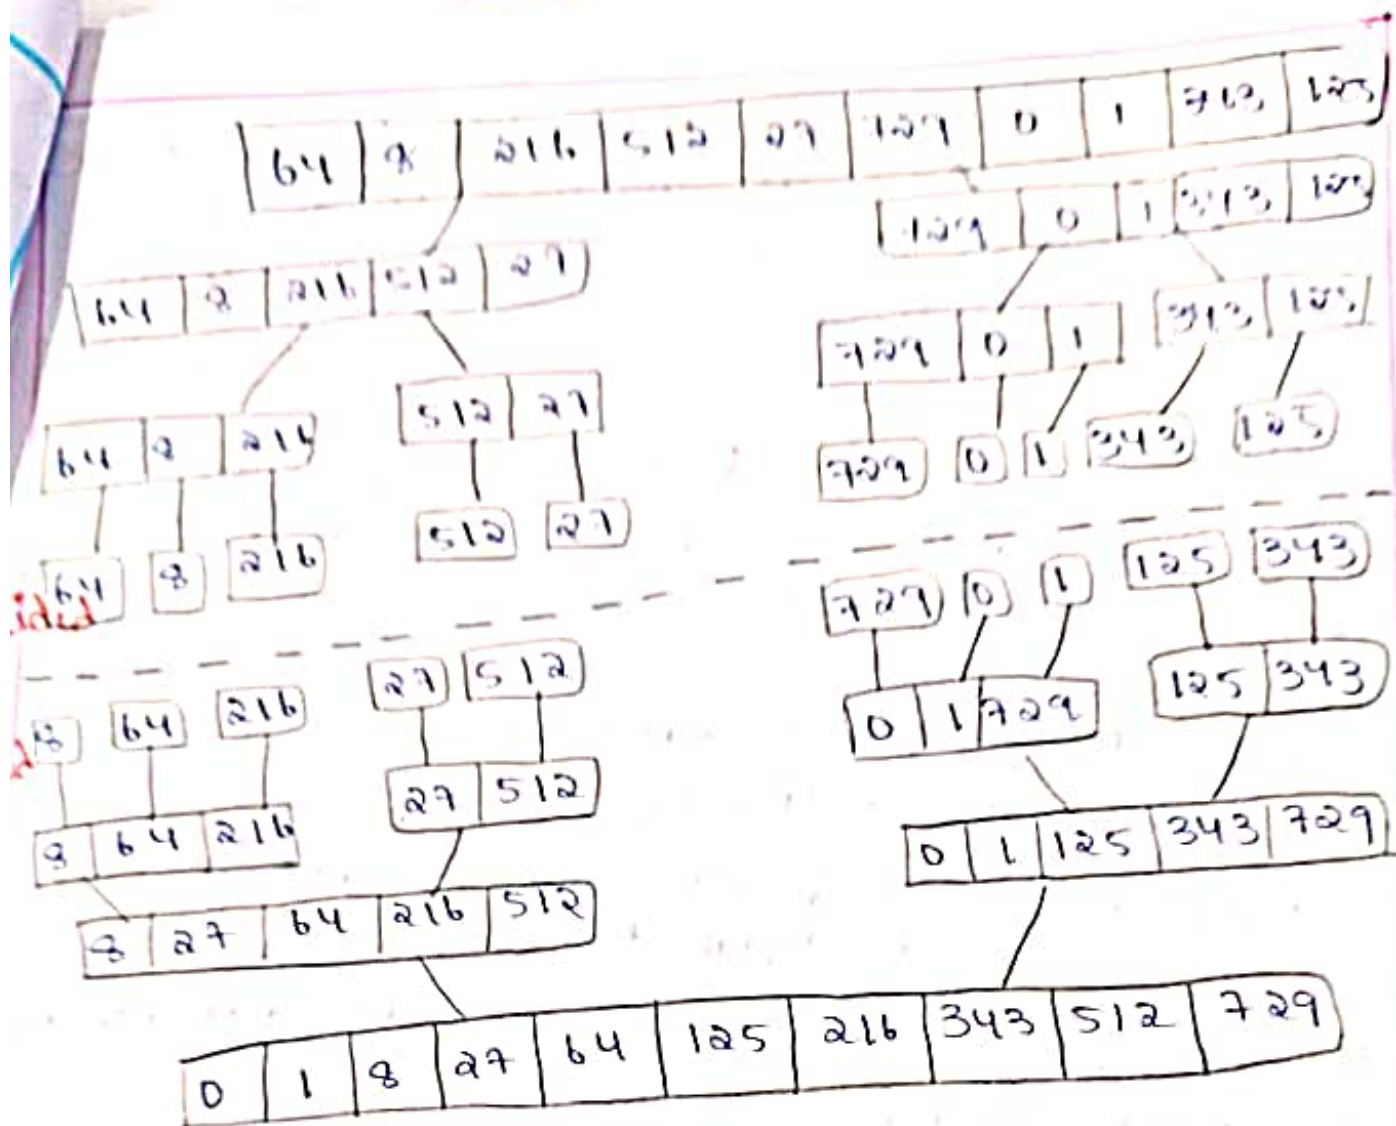 64 8 216 512 27 729 0 1 343 125
729 0 1 343 125
64 8 216 512 27
729 0 1 343 125
64 8 216 512 27
729 0 1 343 125
64 8 216 512 27
729 0 1 125 343
27 512
8 64 216
0 1 729 125 343
27 512
8 64 216
0 1 125 343 729
8 27 64 216 512
0 1 8 27 64 125 216 343 512 729